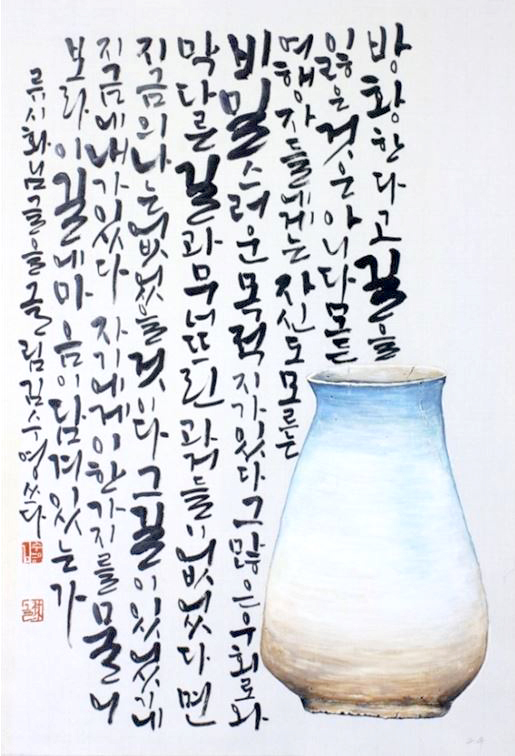 방황한다고 길을
잃은 것은 아니다 모든
여행자들에게는 자신도 모르는
비밀스러운 목적지가 있다 그 많은 우회로와
막다른 길과 무너뜨린 과거들이 없었다면
지금의 나는 없었을 것이다 그 길이 있었기에
지금에 내가 있다 자기에게 이 한가지를 물어
보라 이 길에 마음이 담겨 있는가
류시화님 글을 글림 김수영 쓰다